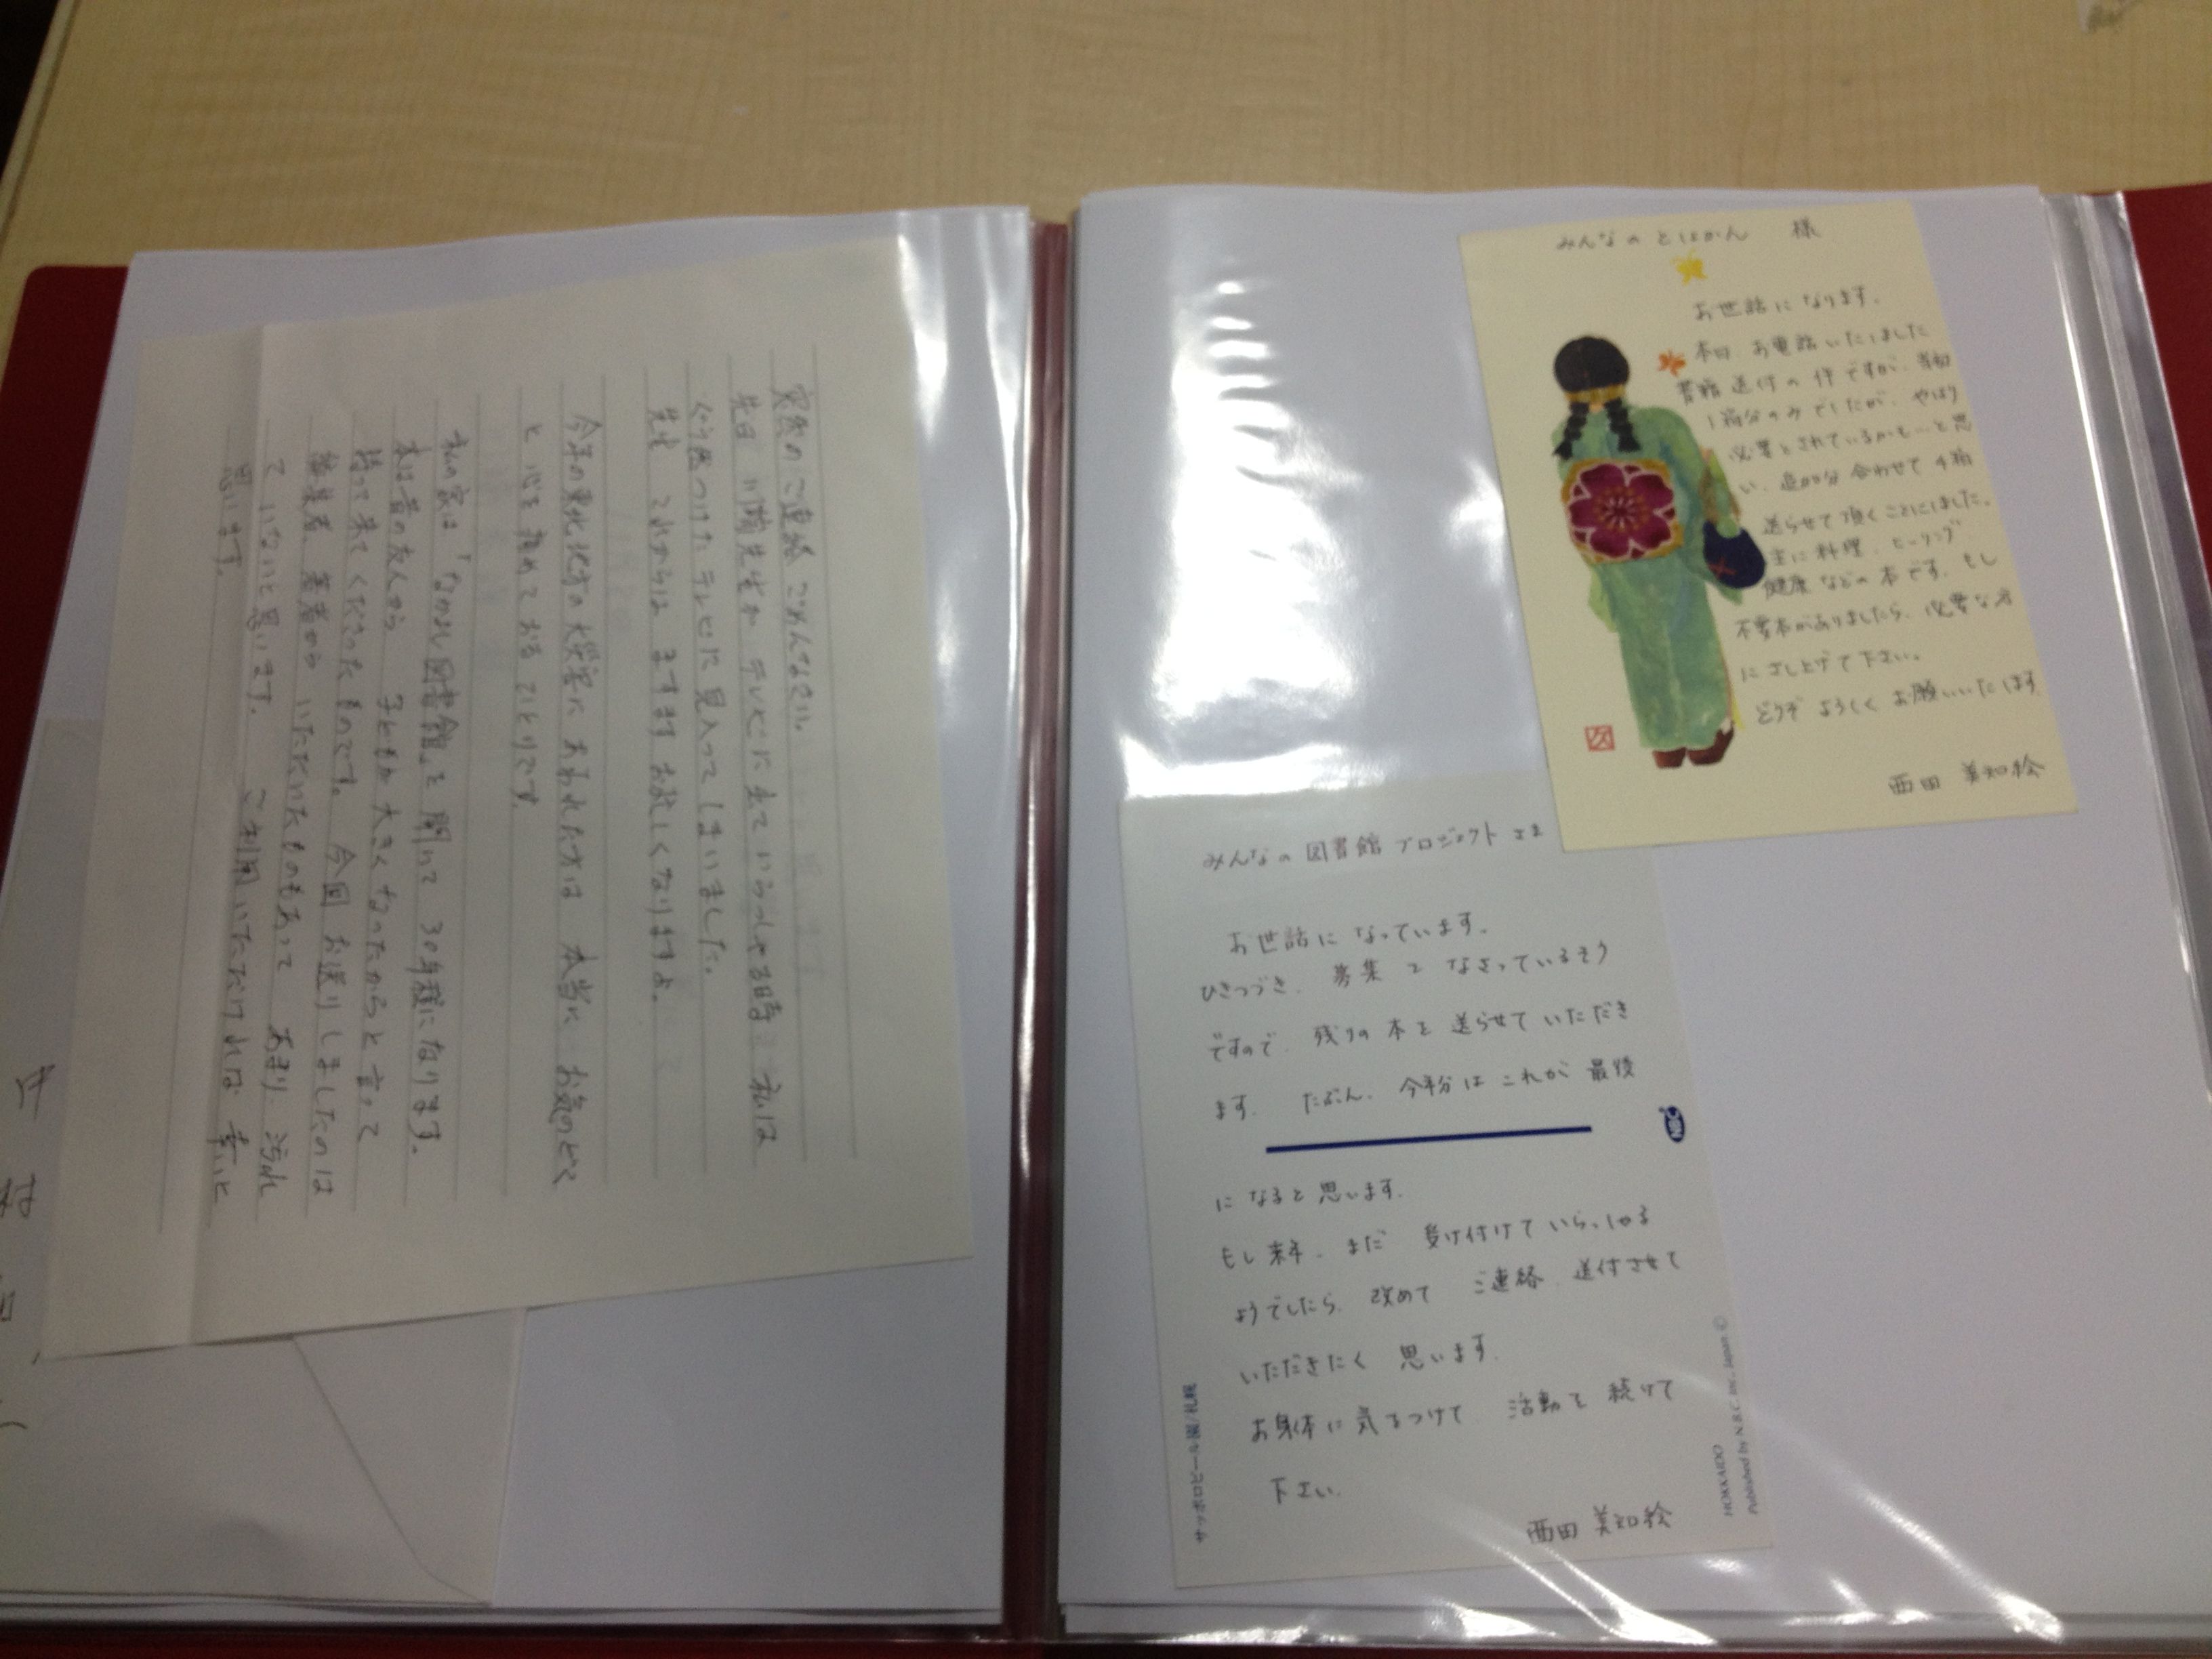 突然のご連絡 ごめんなさい。
先日 川崎先生が テレビに 出て いらっしゃる時 私は
ぐう然つけた テレビに 見入って しまいました。
先生 これからは ますます お忙しくなりますよ。
今年の東北地方の大災害に あわれた方は 本当に お気のどく
と 心を 痛めて おる ひとりです。
私の家は 「なかよし図書館」を 開いて 30年程になります。
本は昔の友人から 子どもが 大きく なったからと 言って
持って 来て くださった ものです。 今回 お送りしましたのは
編集者、著者から いただいたものもあって あまり 汚れ
て いないと 思います。 ご利用 いただければ 幸いと
思います。
みんなのとしょかん 様
お世話になります。
本日 お電話いたしました
書籍送付の件ですが、当初
1箱分のみでしたが、やはり
必要とされているかも…と思
い、追加分 合わせて 4箱
送らせて頂くことにしました。
主に料理、ヒーリング
健康などの本です。もし
不要本がありましたら、必要な方
にさし上げて下さい。
どうぞ よろしく お願いいたします
西田 美知絵
みんなの図書館プロジェクト さま
お世話に なっています。
ひきつづき、 募集を なさっているそう
ですので、 残りの 本を 送らせて いただき
ます。 たぶん、 今年分は これが 最後
に なると 思います。
もし 来年、 まだ 受け付けて いらっしゃる
ようでしたら、 改めて ご連絡、送付させて
いただきたく 思います。
お身体に 気をつけて 活動を 続けて
下さい。
西田 美知絵
サッポロビール園/札幌
HOKKAIDO
Published by N.B.C. Inc., Japan ©
NBC